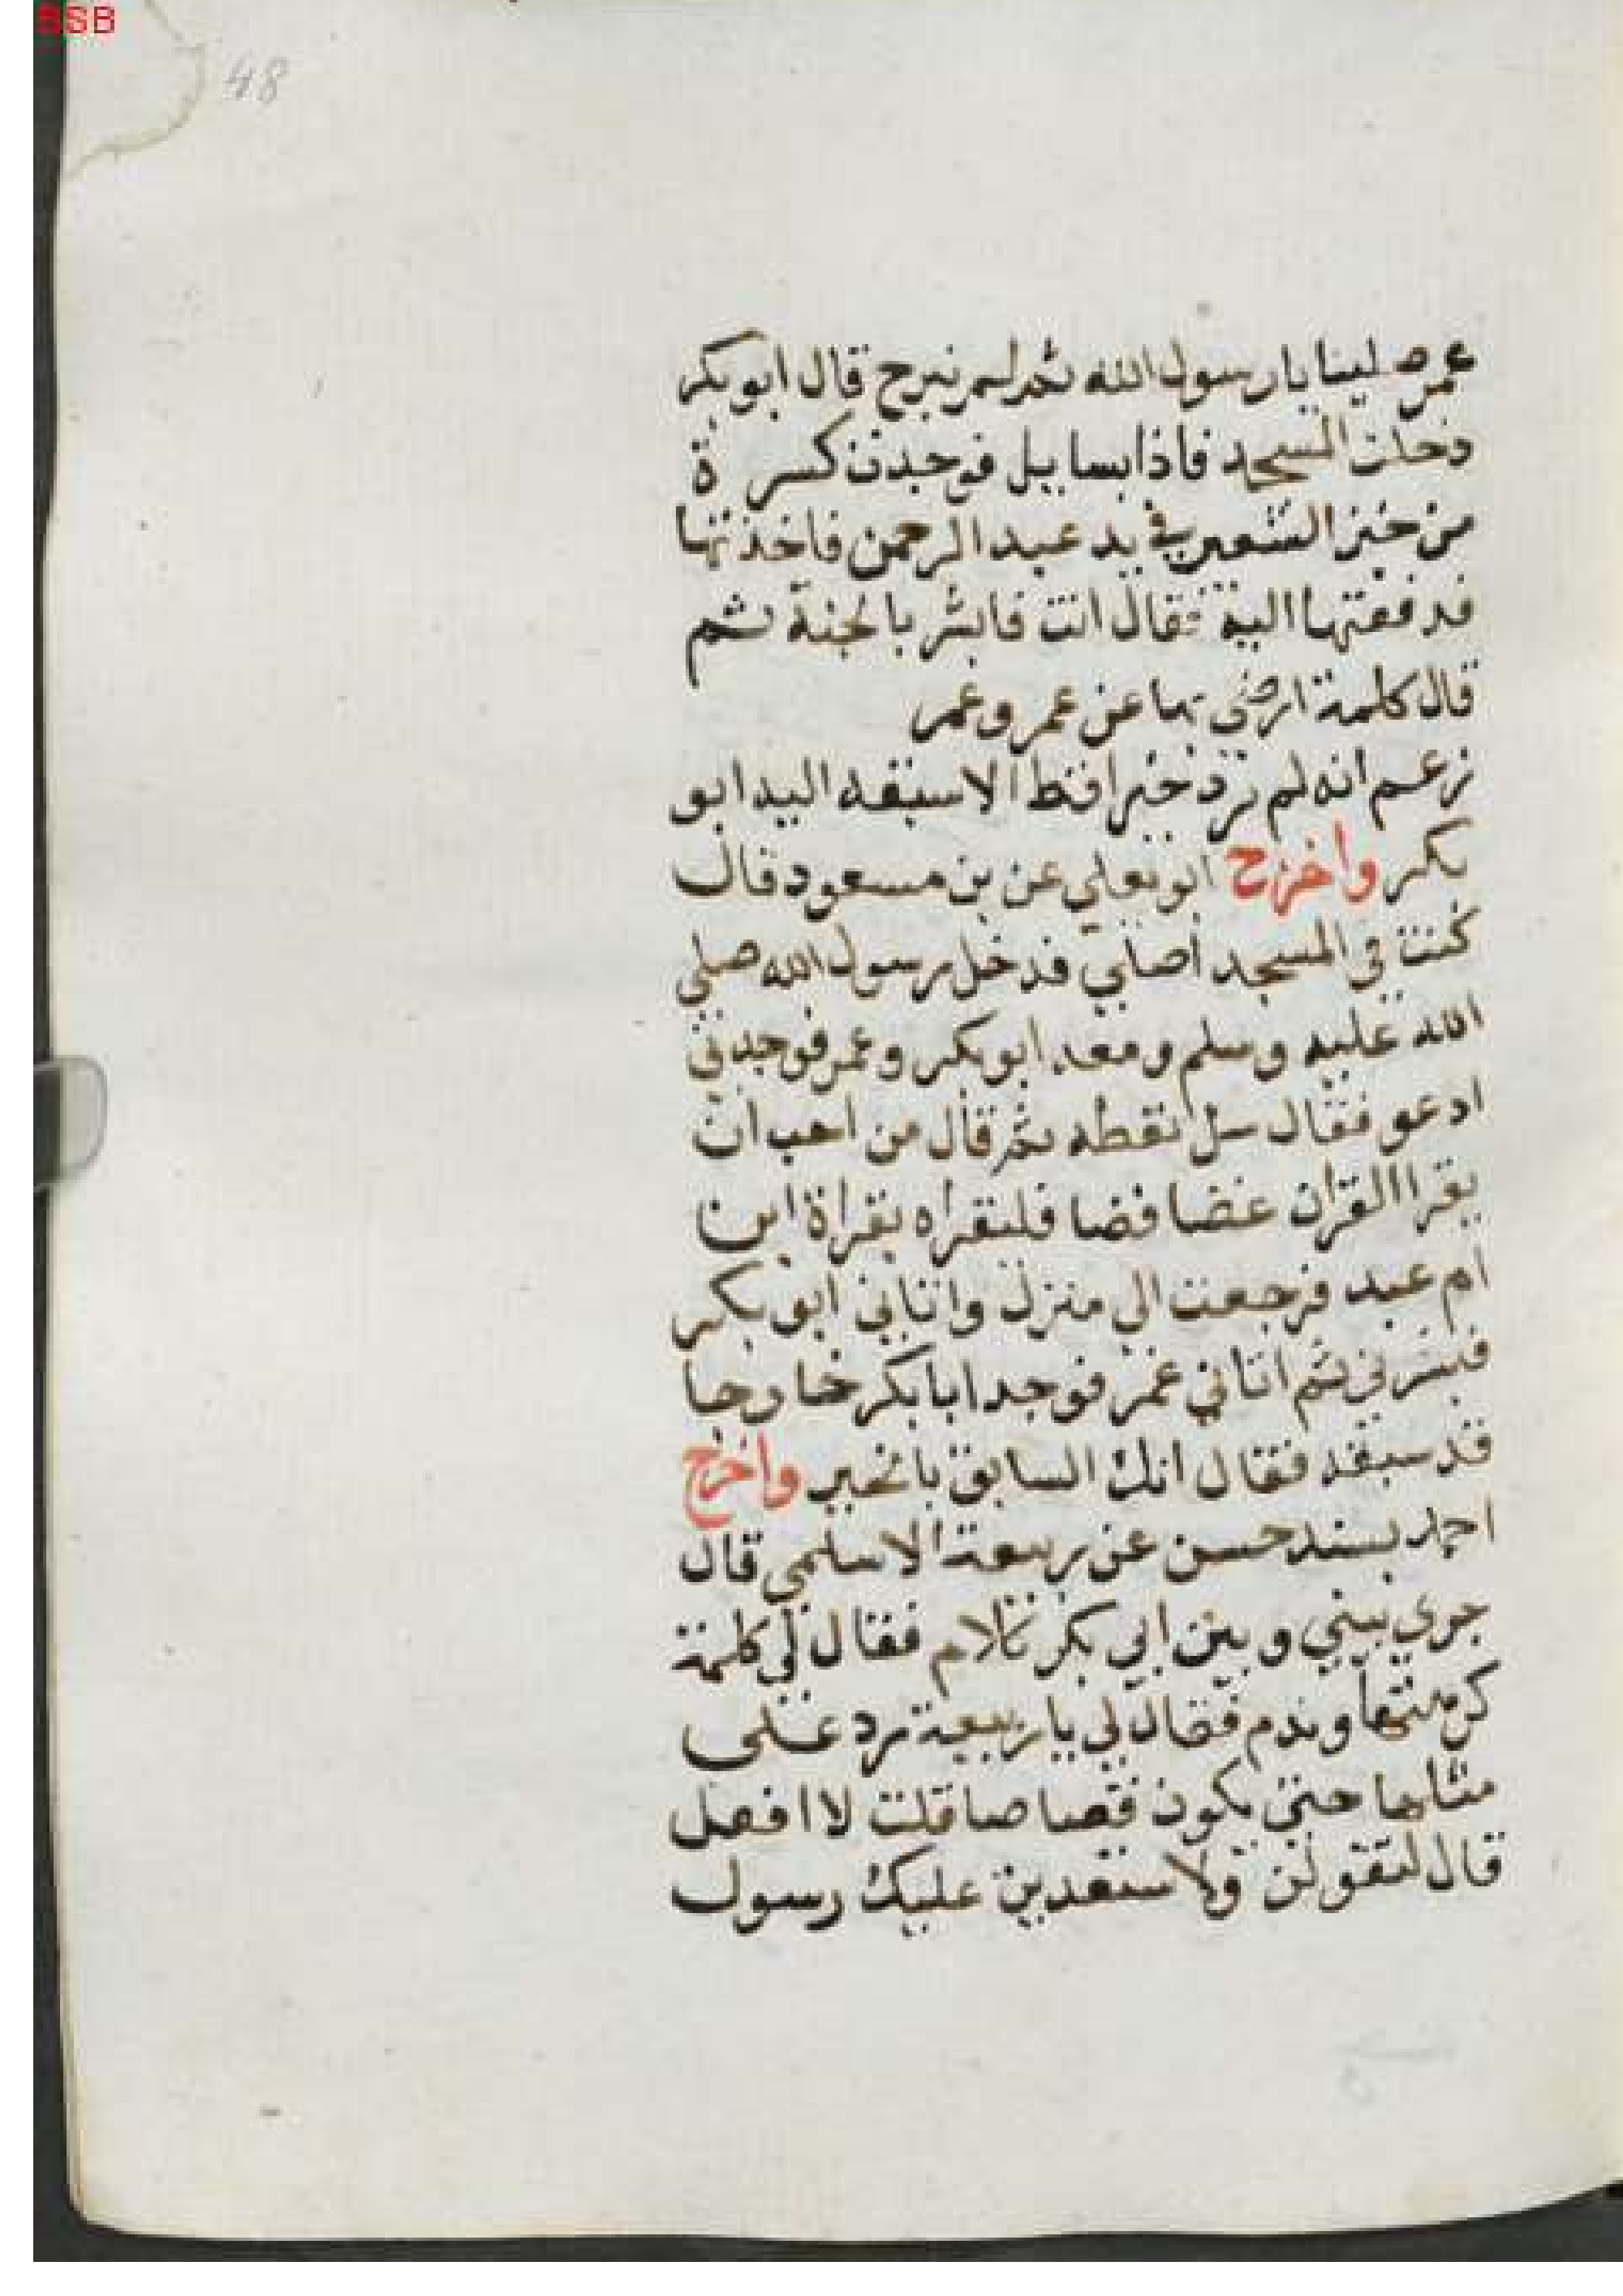 BSB
48
عمر صلينا يا رسول الله ثم لم نبرح قال ابو بكر
دخلت المسجد فاذا بسايل فوجدت كسرة
من خبز الشعير في يد عبد الرحمن فاخذتها
فدفعتها اليه فقال انت فابشر بالجنة ثم
قال كلمة ارضى بها عن عمر وعمر
زعم انه لم يرد خيرا قط الا سبقه اليه ابو
بكر واخرج ابو يعلي عن بن مسعود قال
كنت في المسجد اصلي فدخل رسول الله صلي
الله عليه وسلم ومعه ابو بكر وعمر فوجدني
ادعو فقال سل نقطه ثم قال من احب ان
يقرا القران غضا فضا فليقراه بقراة ابن
ام عبد فرجعت الي منزل واتاني ابو بكر
فبشرني ثم اتاني عمر فوجد ابا بكر خارجا
قد سبقه فقال انك السابق بالخير واخرج
احمد بسند حسن عن ربيعة الاسلمي قال
جري بيني وبين ابي بكر كلام فقال لي كلمة
كرهتها وندم فقال لي يا ربيعة رد على
مثلها حتى يكون قصاصا قلت لا افعل
قال لتقولن ولاستعدين عليك رسول